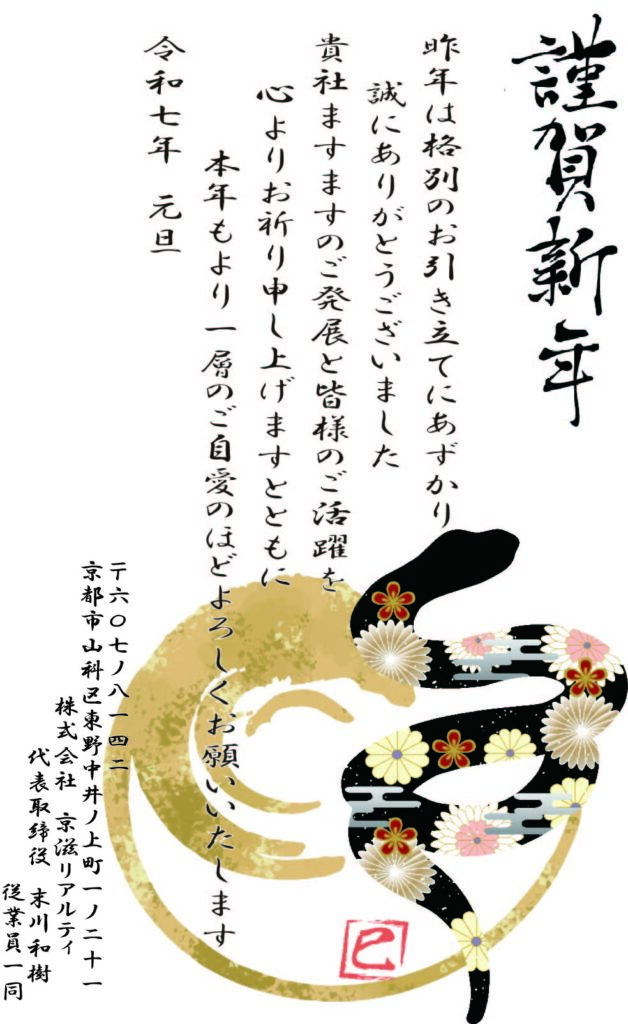 謹賀新年
昨年は格別のお引き立てにあずかり
誠にありがとうございました
貴社ますますのご発展と皆様のご活躍を
心よりお祈り申し上げますとともに
本年もより一層のご自愛のほどよろしくお願いいたします
令和七年 元旦
〒六〇七ノ八一四二
京都市山科区東野中井ノ上町一ノ二十一
株式会社 京滋リアルティ
代表取締役 末川和樹
従業員一同
巳